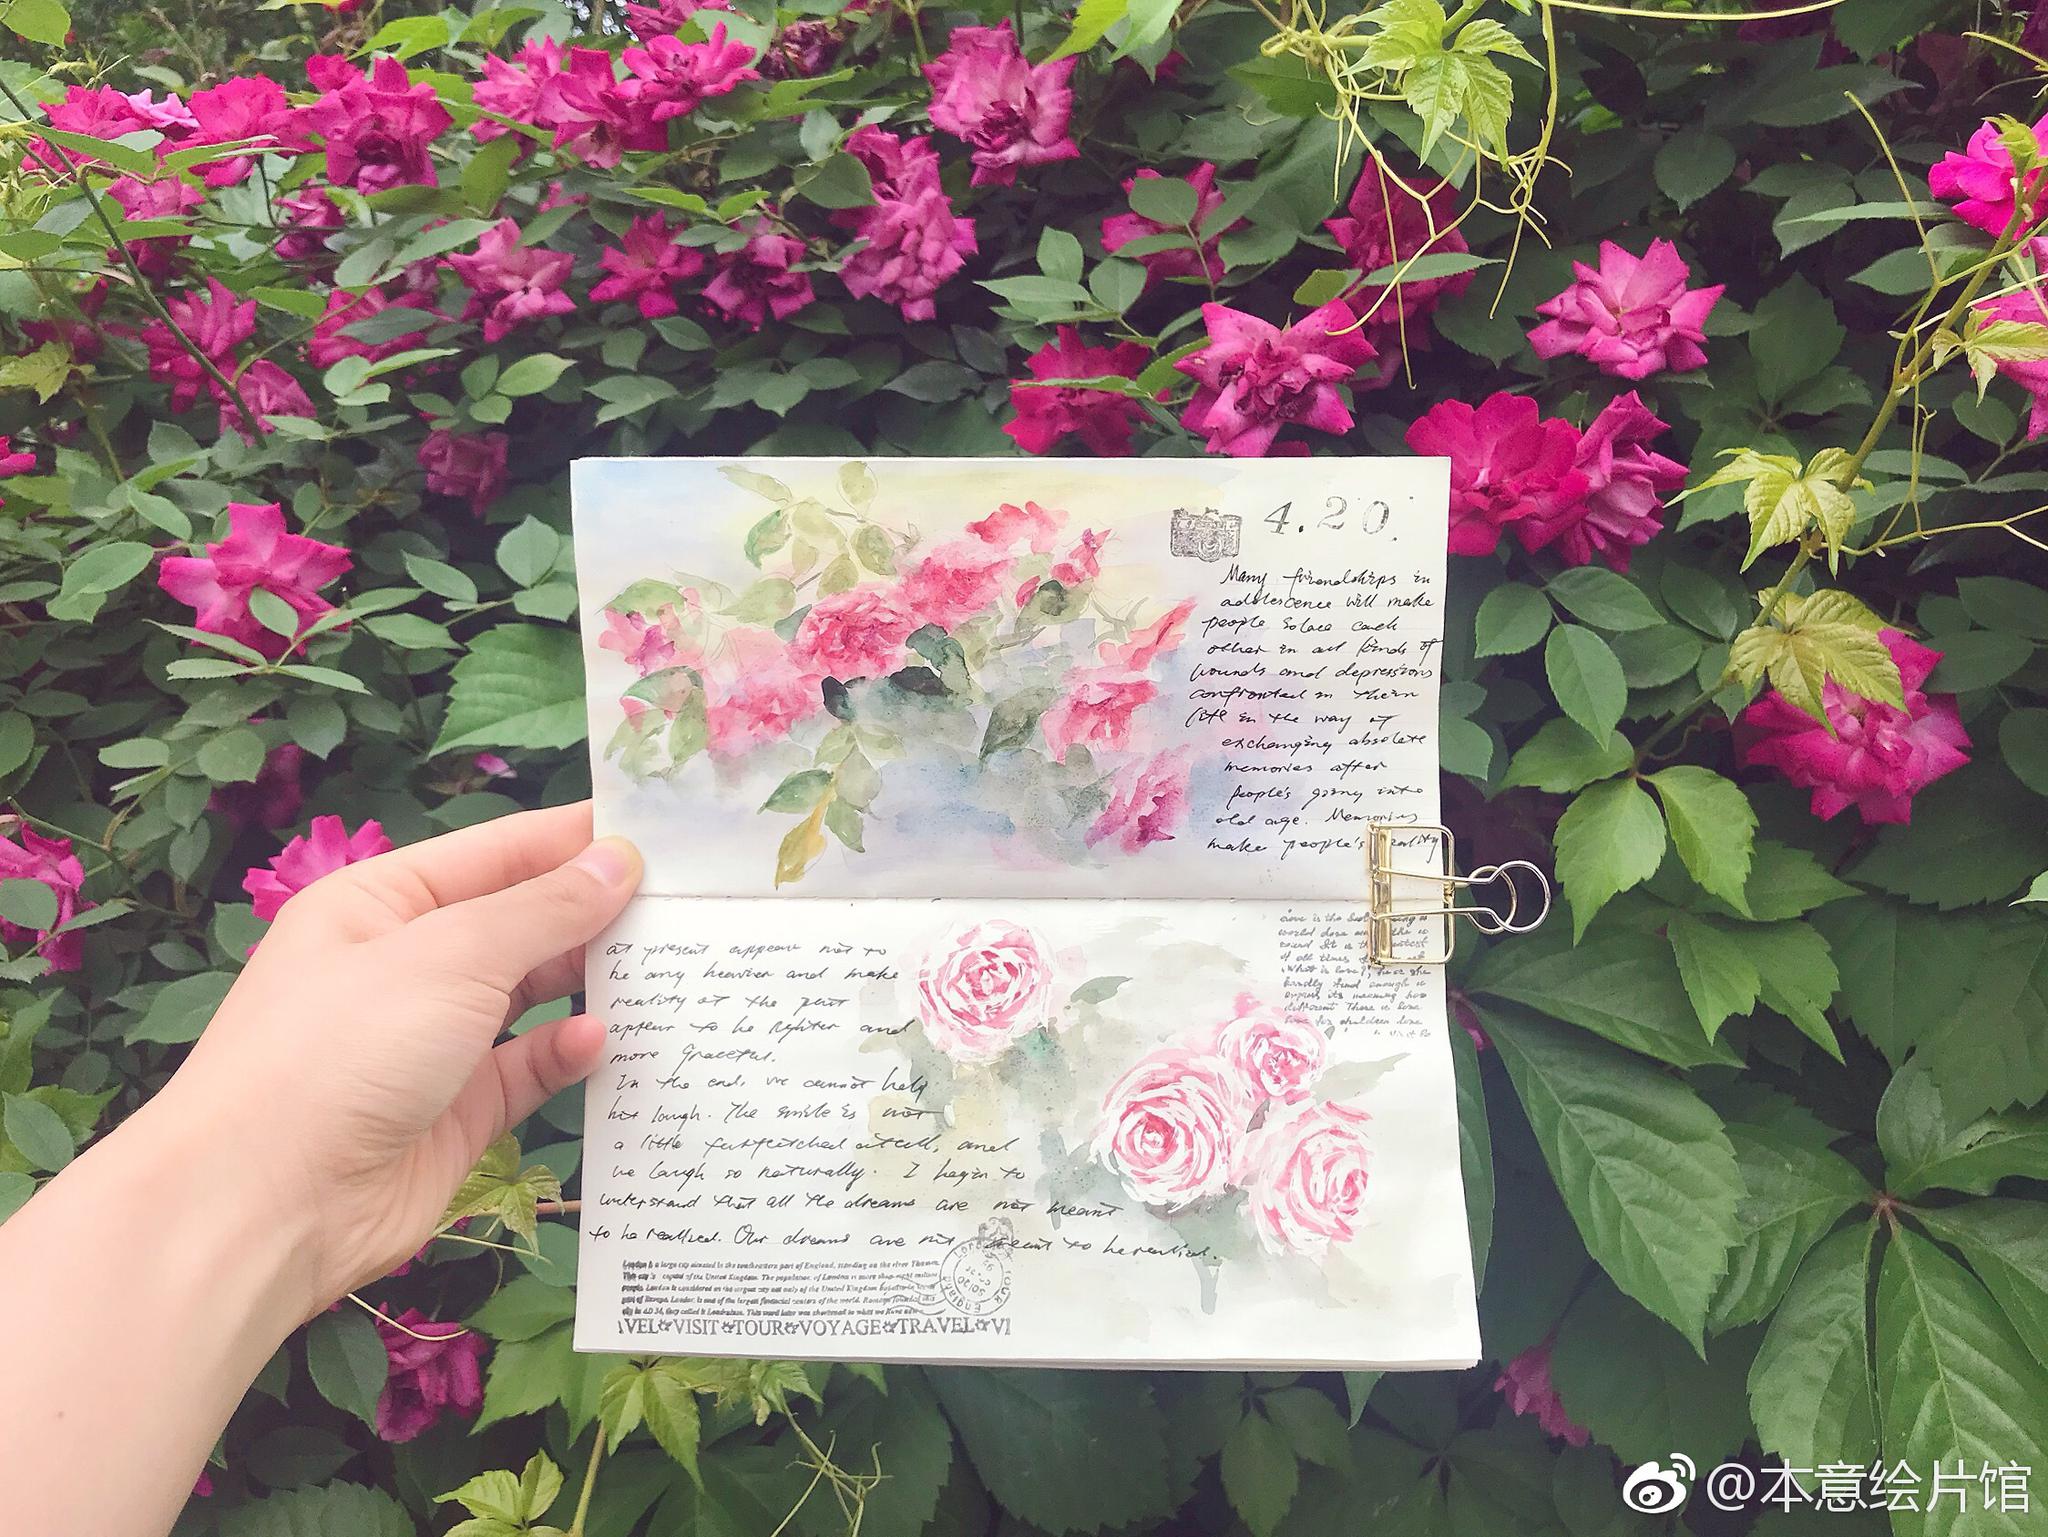 4.20.
Many friendships in
adolescence will make
people solace each
other in all kinds of
wounds and depressions
confronted in their
life in the way of
exchanging absolete
memories after
people's going into
old age. Memories
make people's reality
at present appear not to
be any heavier and make
reality at the past
appear to be lighter and
more Graceful.
In the end, we cannot help
but laugh. The smile is not
a little farfetched at all, and
we laugh so naturally. I begin to
understand that all the dreams are not meant
to be realized. Our dreams are not meant to be
love is the
world does the
round It is the
of all times
What is love?
hardly find enough
express its meaning
different There is love
love for children love
London is a large city situated in the southeastern part of England, standing on the river Thames.
This city is capital of the United Kingdom. The population of London is more
people. London is considered as the largest city not only of the United Kingdom
part of Europe. London is one of the largest financial centers of the world. Romans founded this
city in A.D 34, they called it Londinium. This word later was shortened to what we
VEL VISIT TOUR VOYAGE TRAVEL VI
TOUR
England
@本意绘片馆